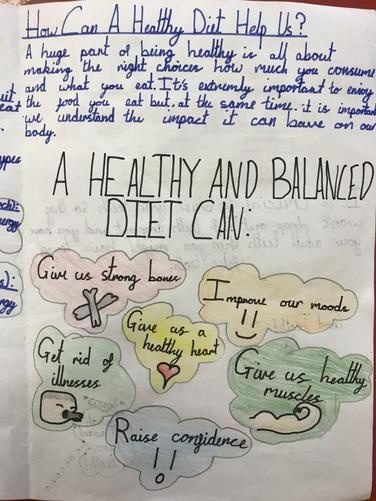 How Can A Healthy Diet Help Us?
A huge part of being healthy is all about
making the right choices how much you consume
and what you eat. It's extremely important to enjoy
the food you eat but at the same time. it is important
we understand the impact it can have on our
body.
A HEALTHY AND BALANCED
DIET CAN:
Give us strong bones
Improve our moods
Give us a
healthy heart
Get rid of
illnesses
*cough*
Give us healthy
muscles
Raise confidence
!!